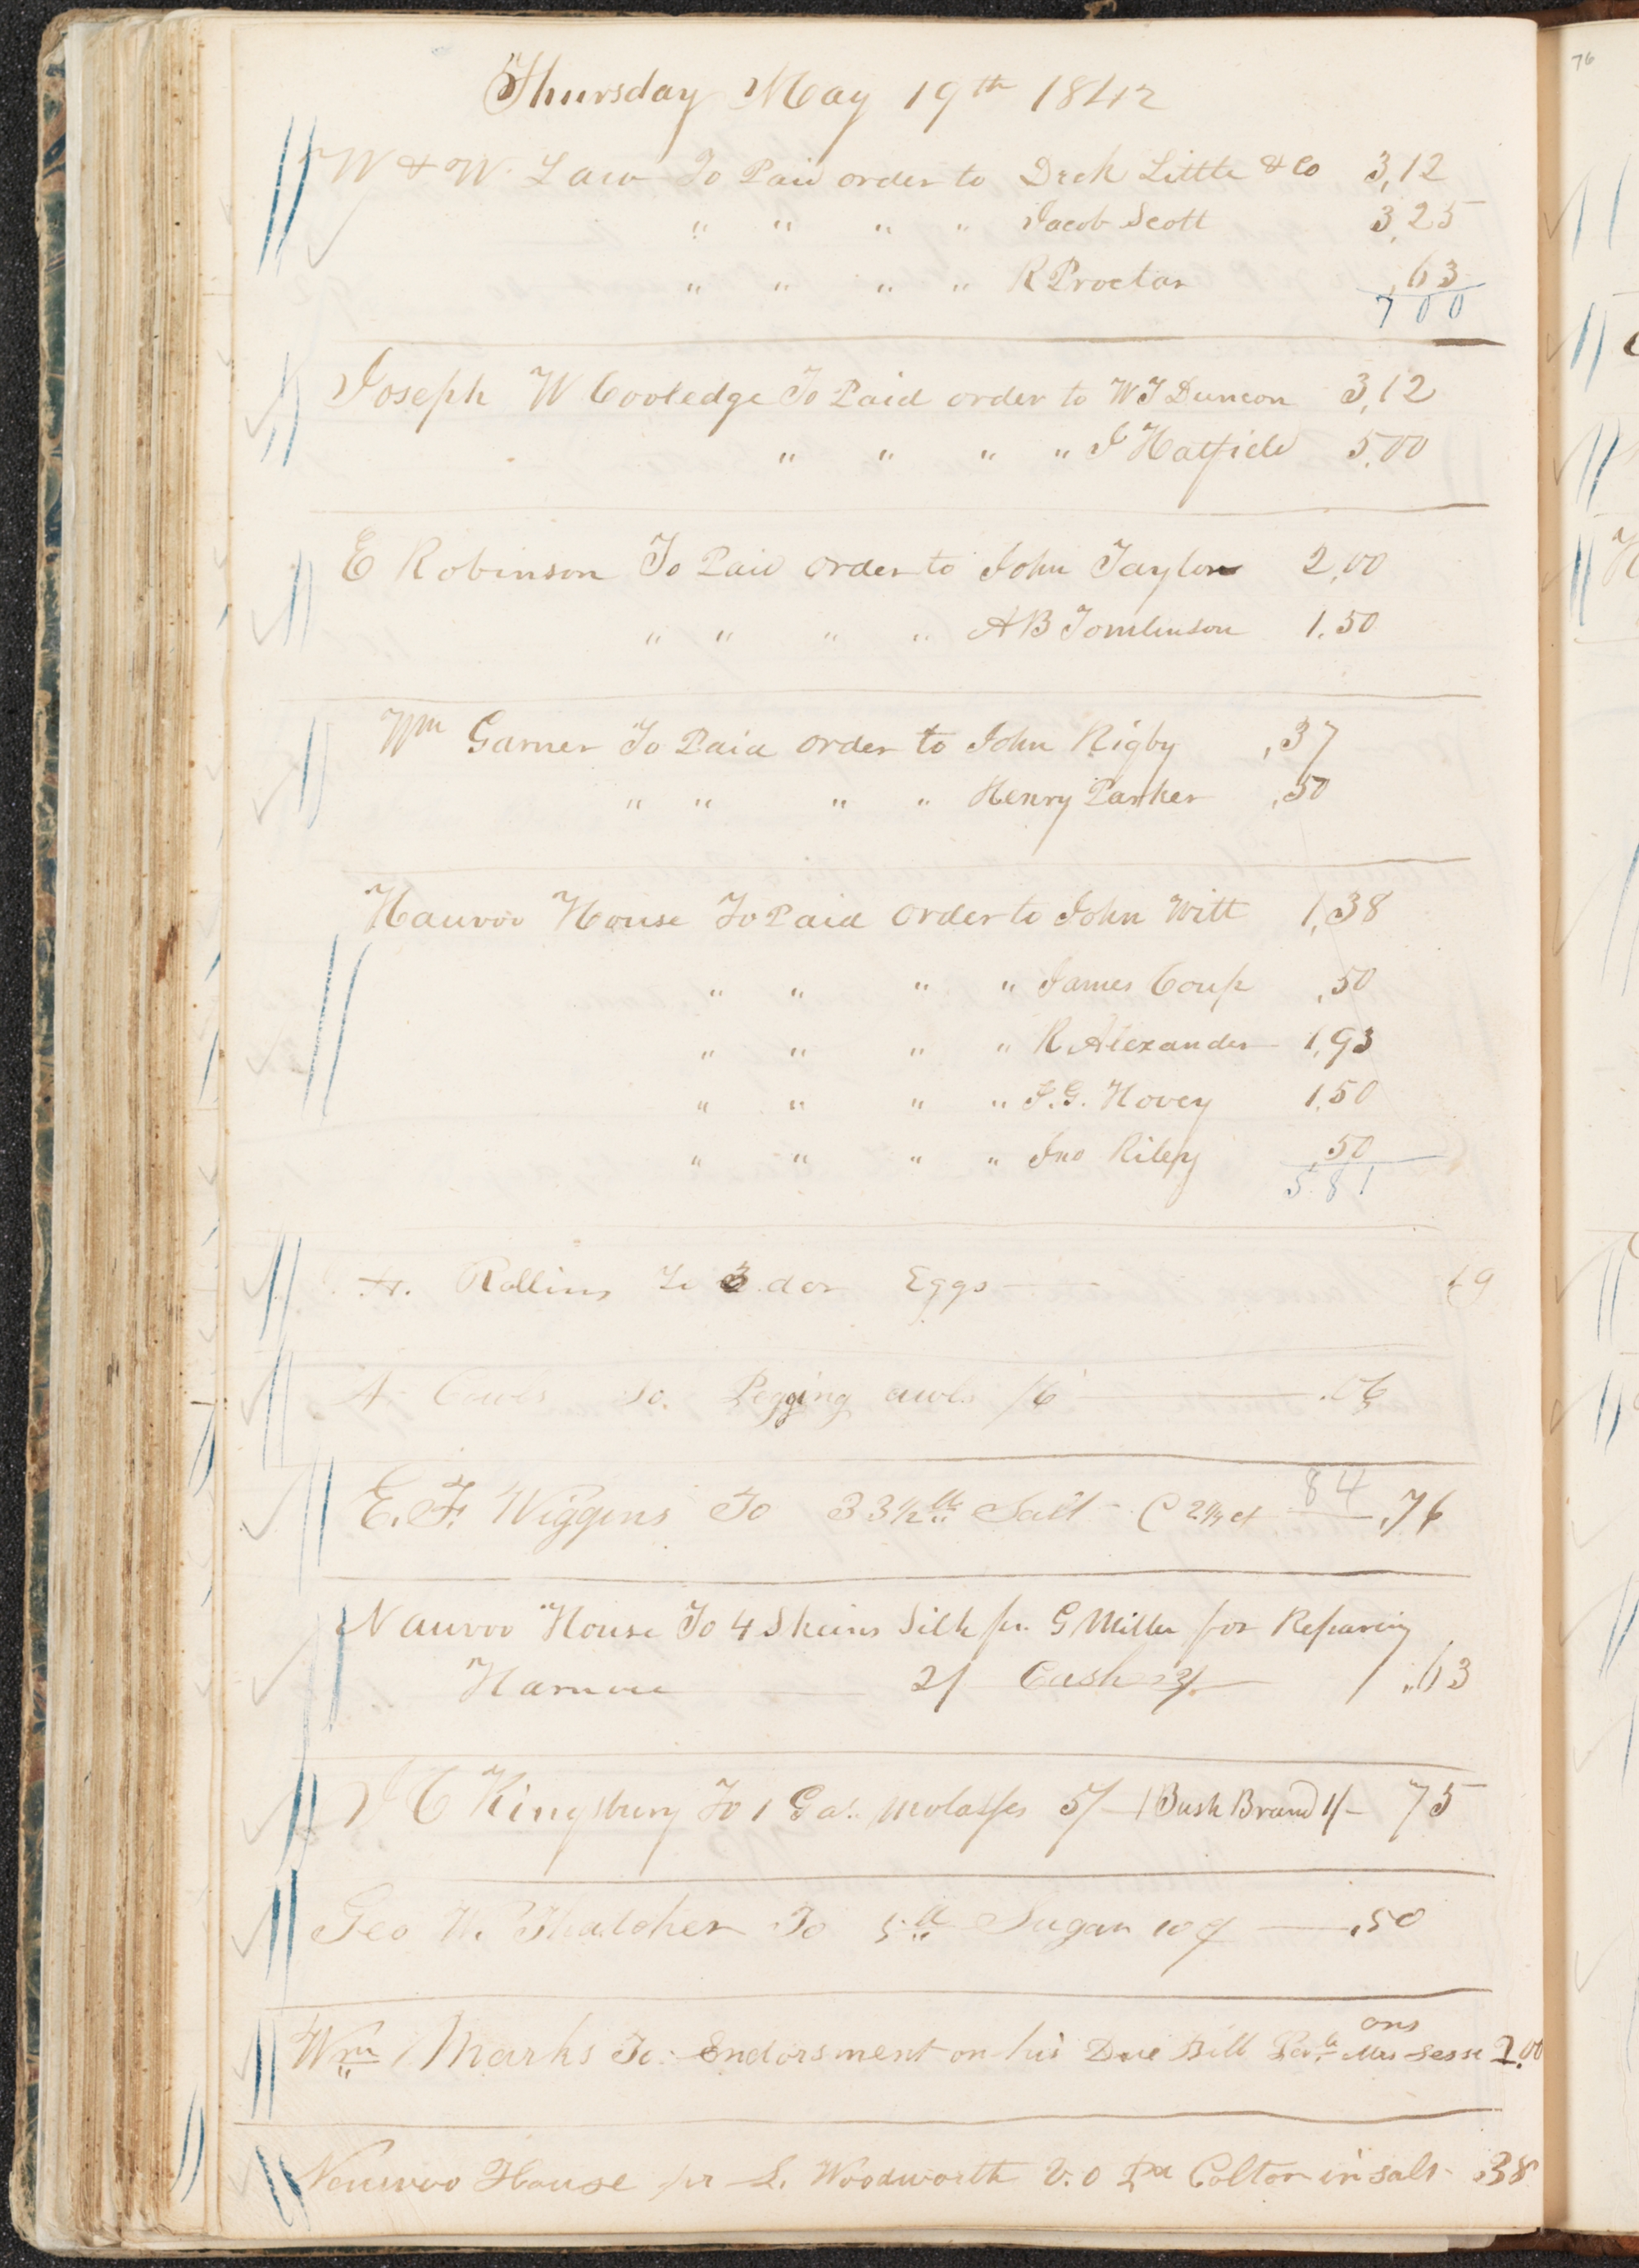 76
Thursday May 19th 1842
W & W. Law To Paid order to Dick Little & Co 3,12
" " " " Jacob Scott 3,25
" " " " R Proctor ,63
7 00
Joseph W Cooledge To Paid order to W J Duncon 3,12
" " " " J Hatfield 5,00
E Robinson To Paid order to John Taylor 2,00
" " " " A B Tomlinson 1.50
Wm Garner To Paid order to John Rigby ,37
" " " " Henry Parker ,50
Nauvoo House To Paid order to John Witt 1,38
" " " " James Coup ,50
" " " " R Alexander 1,93
" " " " J. G. Hovey 1.50
" " " " Jno Riley ,50
5 81
Rollins To 3 doz Eggs
A Cowls To Pegging awls /6 .06
E. F. Wiggins To 33½ lb Salt - @ 2½ ct 84 ,76
Nauvoo House To 4 Skeins Silk pr. G Miller for Reparing
Harness 2/ Cash 3/ .63
J C Kingsbury To 1 Gal. Molasses 5/ - 1 Bush Brand 1/- 75
Geo W. Thatcher To 5 lb Sugar 10 ¢ .50
ons
Wm Marks To Endorsment on his Due Bill Mrs Sess 2.00
Nauvoo House pr L. Woodworth V. O Colton in salt .38